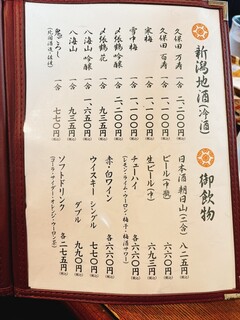 新潟地酒(冷酒)
久保田 万寿 一合 二、二〇〇円
久保田 百寿 一合
寒梅 一合
雪中梅 一合 二、二〇〇円
〆張鶴 吟醸 一合 二、二〇〇円
〆張鶴 花 一合 九三五円
八海山 吟醸 一合 一、六五〇円
八海山 一合 九三五円
鬼ごろし 一合 七七〇円
御飲物
日本酒 朝日山(二合) 八二五円
ビール(中瓶)
生ビール(中) 六九三円
チューハイ 各六六〇円
(レモン・ライム・ウーロン・梅干・梅酒サワー)
赤・白ワイン 各六六〇円
ウイスキー シングル 七七〇円
ダブル 九九〇円
ソフトドリンク 各二七五円
(コーラ・サイダー・オレンジ・ウーロン茶)